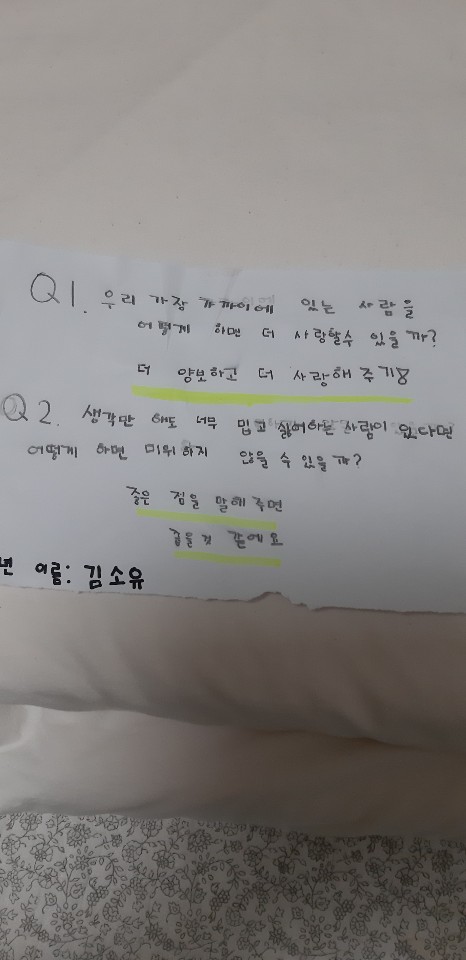 Q1. 우리 가장 가까이에 있는 사람을
어떻게 하면 더 사랑할수 있을까?
더 양보하고 더 사랑해 주기
Q2. 생각만 해도 너무 밉고 싫어하는 사람이 있다면
어떻게 하면 미워하지 않을 수 있을까?
좋은 점을 말해 주면
좋을것 같에요
년 이름: 김소유